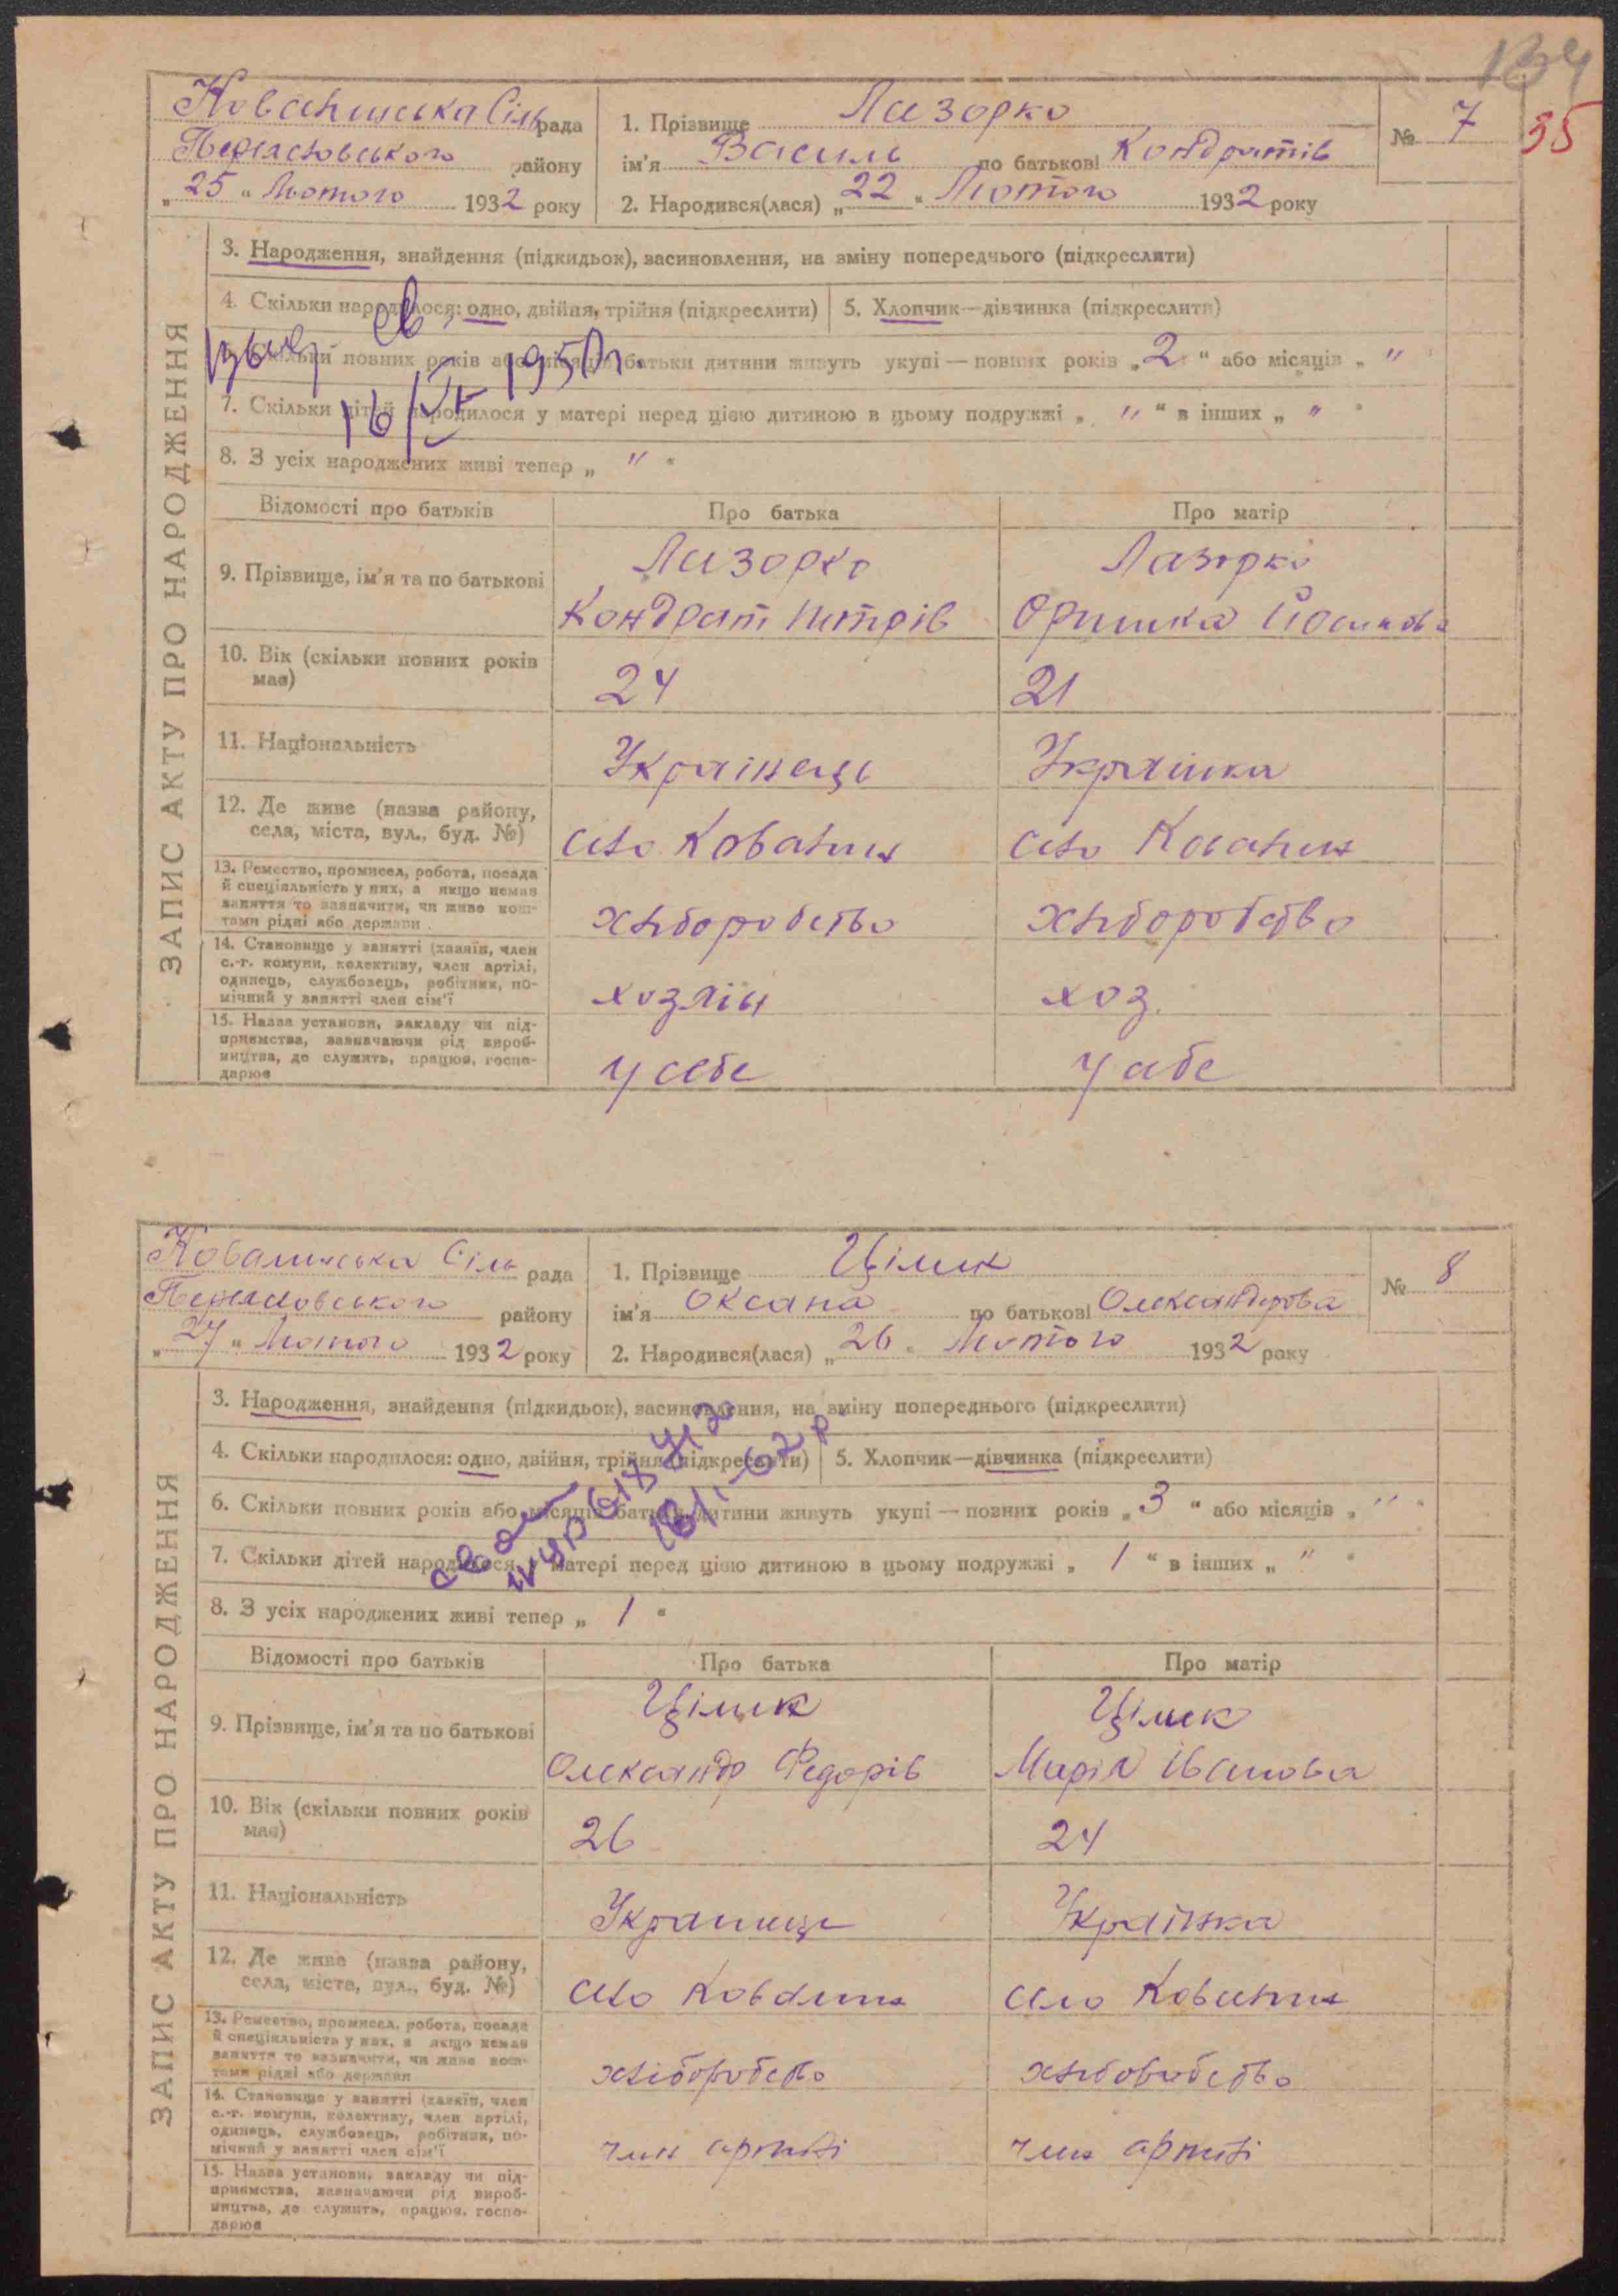 134
55
Ковалинська Сіль рада
Переяславського району
„ 25 " Лютого 1932 року
1. Прізвище Лазорко
ім'я Василь по батькові Кондратів
2. Народився(лася) „ 22 " Лютого 1932 року
№ 7
ЗАПИС АКТУ ПРО НАРОДЖЕННЯ
3. Народження, знайдення (підкидьок), засиновлення, на зміну попереднього (підкреслити)
4. Скільки народилося: одно, двійня, трійня (підкреслити)
5. Хлопчик—дівчинка (підкреслити)
6. Скільки повних років або місяців батьки дитини живуть укупі — повних років „ 2 " або місяців „ "
16/VI 1951 г.
7. Скільки дітей народилося у матері перед цією дитиною в цьому подружжі „ " " в інших „ " "
8. З усіх народжених живі тепер „ " "
Відомості про батьків
Про батька
Про матір
9. Прізвище, ім'я та по батькові
Лазорко
Кондрат Петрів
Лазорко
Оришка Йосипова
10. Вік (скільки повних років має)
24
21
11. Національність
Українець
Українка
12. Де живе (назва району, села, міста, вул., буд. №)
село Ковалин
село Ковалин
13. Ремество, промисел, робота, посада й спеціяльність у них, а якщо немає заняття то зазначити, чи живе коштами рідні або держави
хліборобство
хліборобство
14. Становище у занятті (хазяїн, член с.-г. комуни, колективу, член артілі, одинець, службовець, робітник, помічний у занятті член сім'ї
хозяїн
хоз.
15. Назва установи, закладу чи підприємства, зазначаючи рід виробництва, де служить, працює, господарює
у себе
у себе
Ковалинська Сіль рада
Переяславського району
„ 27 " Лютого 1932 року
1. Прізвище Цімик
ім'я Оксана по батькові Олександрова
2. Народився(лася) „ 26 " Лютого 1932 року
№ 8
ЗАПИС АКТУ ПРО НАРОДЖЕННЯ
3. Народження, знайдення (підкидьок), засиновлення, на зміну попереднього (підкреслити)
4. Скільки народилося: одно, двійня, трійня (підкреслити)
5. Хлопчик—дівчинка (підкреслити)
6. Скільки повних років або місяців батьки дитини живуть укупі — повних років „ 3 " або місяців „ " "
7. Скільки дітей народилося у матері перед цією дитиною в цьому подружжі „ 1 " в інших „ " "
8. З усіх народжених живі тепер „ 1 "
Відомості про батьків
Про батька
Про матір
9. Прізвище, ім'я та по батькові
Цімик
Олександр Федорів
Цімик
Марія Іванова
10. Вік (скільки повних років має)
26
24
11. Національність
Українець
Українка
12. Де живе (назва району, села, міста, вул., буд. №)
село Ковалин
село Ковалин
13. Ремество, промисел, робота, посада й спеціяльність у них, а якщо немає заняття то зазначити, чи живе коштами рідні або держави
хліборобство
хліборобство
14. Становище у занятті (хазяїн, член с.-г. комуни, колективу, член артілі, одинець, службовець, робітник, помічний у занятті член сім'ї
член артілі
член артілі
15. Назва установи, закладу чи підприємства, зазначаючи рід виробництва, де служить, працює, господарює